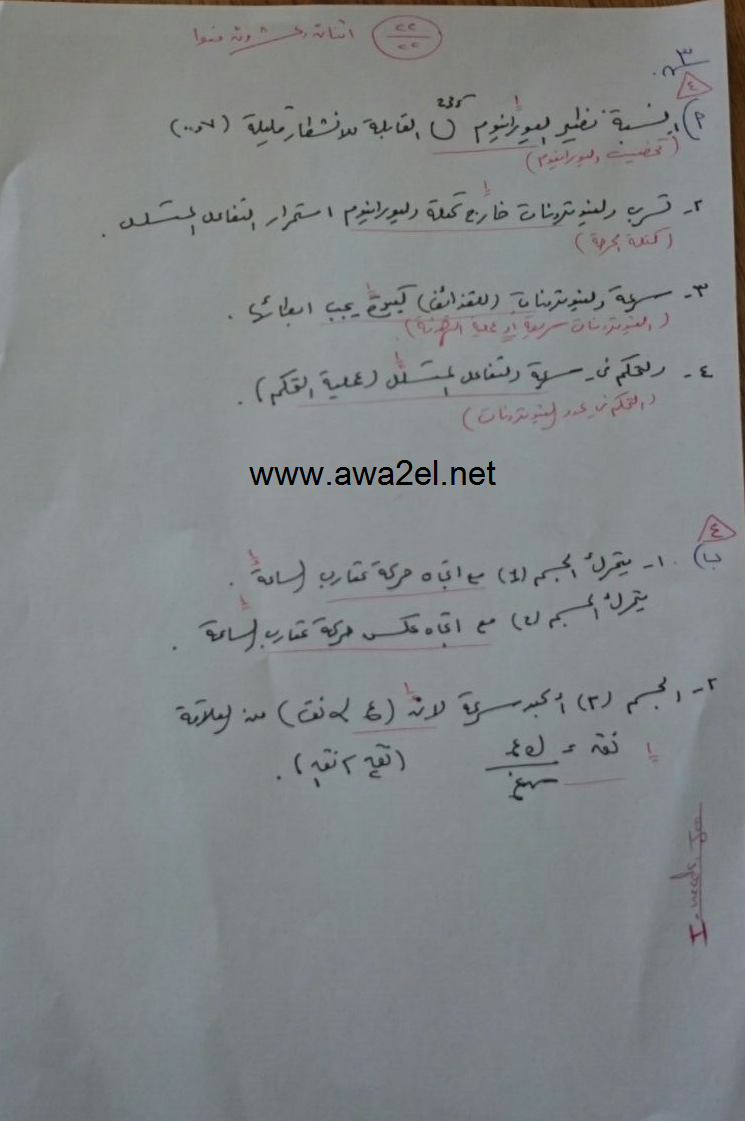 ٢٢/٢٢ اثنان وعشرون فقط
س٣
٤
أ) النسبة نظير اليورانيوم ٢٣٥U القابلة للانشطار قليلة (٠,٠٠٧)
(تخصيب اليورانيوم)
٢- تسرب النيوترونات خارج كتلة اليورانيوم استمرار التفاعل المتسلسل.
(كتلة الحرجة)
٣- سرعة النيوترونات (القذائف) كبيرة يجب ابطائها.
(النيوترونات سريعة أو عملية التهدئة)
٤- التحكم في سرعة التفاعل المتسلسل (عملية التحكم).
(التحكم في عدد النيوترونات)
www.awa2el.net
٤
ب) ١- يتحرك الجسم (١) مع اتجاه حركة عقارب الساعة.
يتحرك الجسم (٢) مع اتجاه عكس حركة عقارب الساعة.
٢- الجسم (٢) أكبر سرعة لانه (ع α نق) من العلاقة
نق = ك ع / سه غ (نق٢ > نق١).